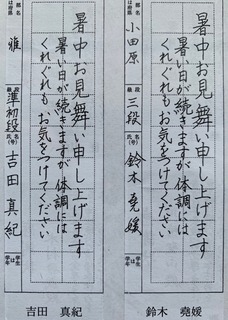 暑中お見舞い申し上げます
暑い日が続きますが体調には
くれぐれもお気をつけてください
小田原
段級
三段
氏名(号)
鈴木堯媛
学年
鈴木 堯媛
部名
暑中お見舞い申し上げます
暑い日が続きますが体調には
くれぐれもお気をつけてください
雅
段級
準初段
氏名(号)
吉田真紀
学年
吉田 真紀